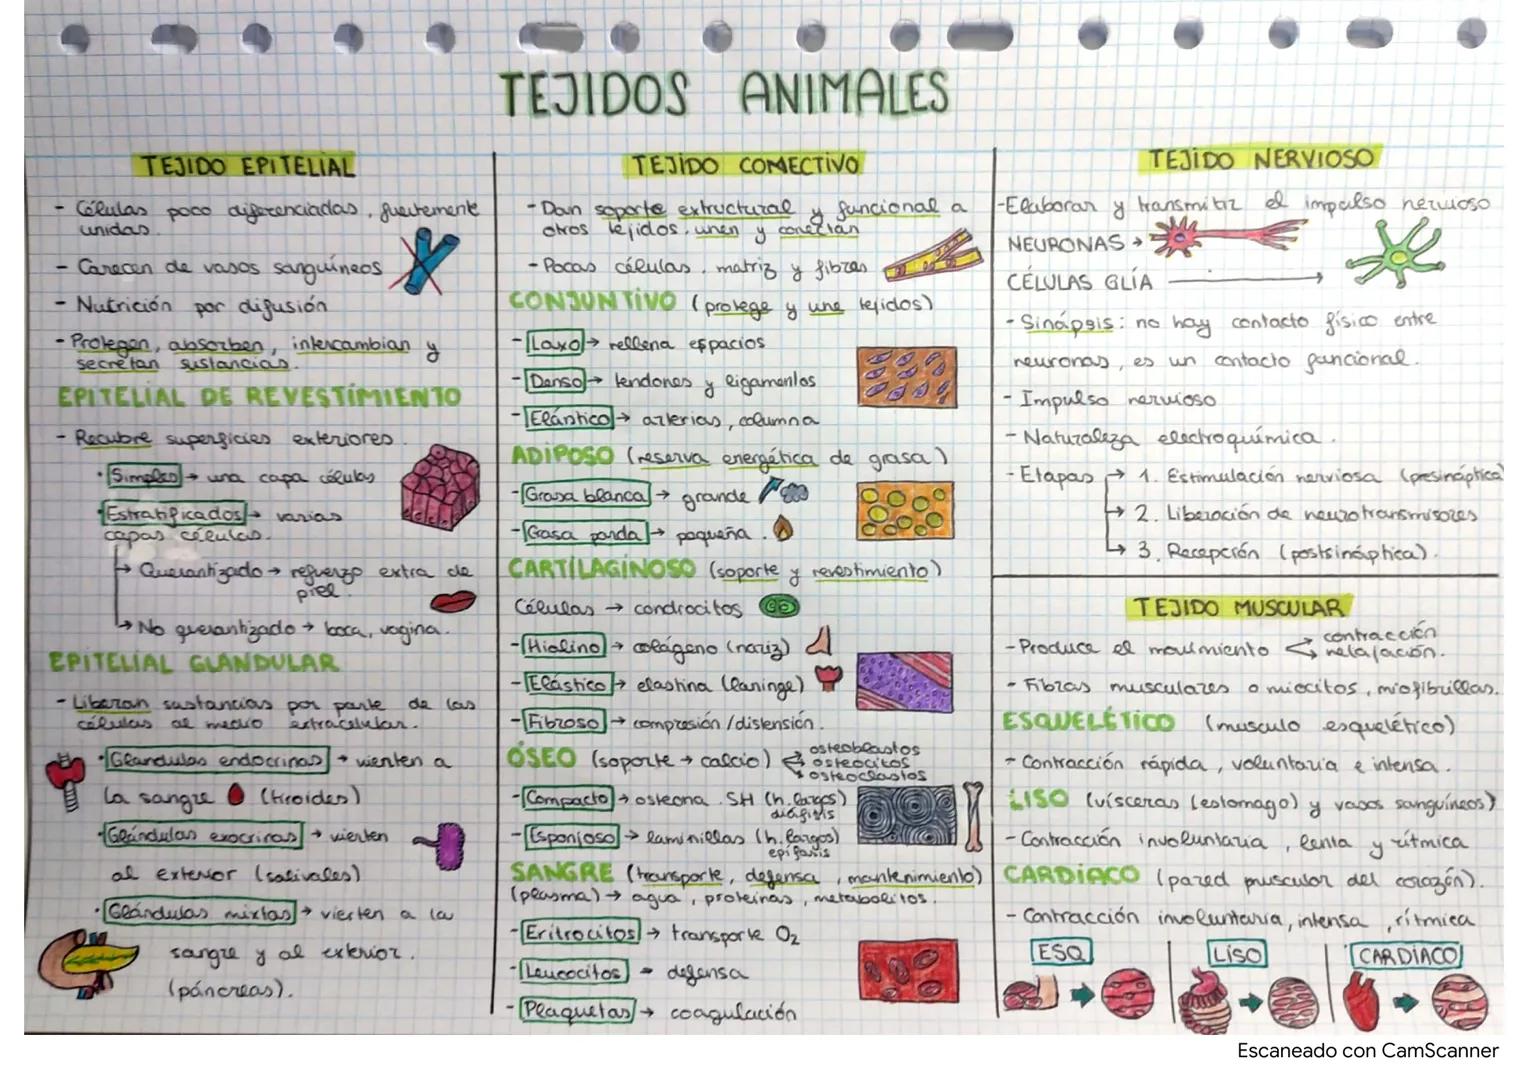 TEJIDOS ANIMALES
TEJIDO EPITELIAL
- Células poco diferenciadas, fuertemente
unidas.
- Carecen de vasos sanguíneos
- Nutrición por difusión
- Protegen, absorben, intercambian y
secretan sustancias.
EPITELIAL DE REVESTIMIENTO
- Recubre superficies exteriores.
· Simples → una capa células
· Estratificados → varias
capas células.
→ Querantizado → refuerzo extra de
piel.
→ No querantizado → boca, vagina.
EPITELIAL GLANDULAR
- Liberan sustancias por parte de las
células al medio extracelular.
· Glandulas endocrinas → vierten a
la sangre (tiroides)
· Glándulas exocrinas → vierten
al exterior (salivales)
· Glándulas mixtas → vierten a la
sangre y al exterior.
(páncreas).
TEJIDO CONECTIVO
- Dan soporte extructural y funcional a
otros tejidos, unen y conectan
- Pocas células, matriz y fibras
CONJUNTIVO (protege y une tejidos)
- Laxo → rellena espacios
- Denso → tendones y ligamentos
- Elástico → arterias, columna
ADIPOSO (reserva energética de grasa)
- Grasa blanca → grande
- Gasa parda → pequeña.
CARTILAGINOSO (soporte y revestimiento)
Células → condrocitos
- Hialino → colágeno (nariz)
- Elástico → elastina (laringe)
- Fibroso → compresión/distensión.
ÓSEO (soporte → calcio) osteoblastos
osteocitos
osteoclastos
- Compacto → osteona. SH (h. largos)
diáfisis
- Esponjoso → laminillas (h. largos)
epífisis
SANGRE (transporte, defensa, mantenimiento)
(plasma) → agua, proteínas, metabolitos.
- Eritrocitos → transporte O₂
- Leucocitos → defensa
- Plaquetas → coagulación
TEJIDO NERVIOSO
- Elaborar y transmitir el impulso nervioso
NEURONAS →
CÉLULAS GLÍA →
- Sinápsis: no hay contacto físico entre
neuronas, es un contacto funcional.
- Impulso nervioso
- Naturaleza electroquímica.
- Etapas → 1. Estimulación nerviosa (presináptica)
→ 2. Liberación de neurotransmisores
→ 3. Recepción (postsináptica).
TEJIDO MUSCULAR
- Produce el movimiento contracción
relajación.
- Fibras musculares o miocitos, miofibrillas.
ESQUELÉTICO (musculo esquelético)
- Contracción rápida, voluntaria e intensa.
LISO (vísceras (estomago) y vasos sanguíneos)
- Contracción involuntaria, lenta y rítmica
CARDÍACO (pared muscular del corazón).
- Contracción involuntaria, intensa, rítmica
ESQ
LISO
CARDÍACO
Escaneado con CamScanner